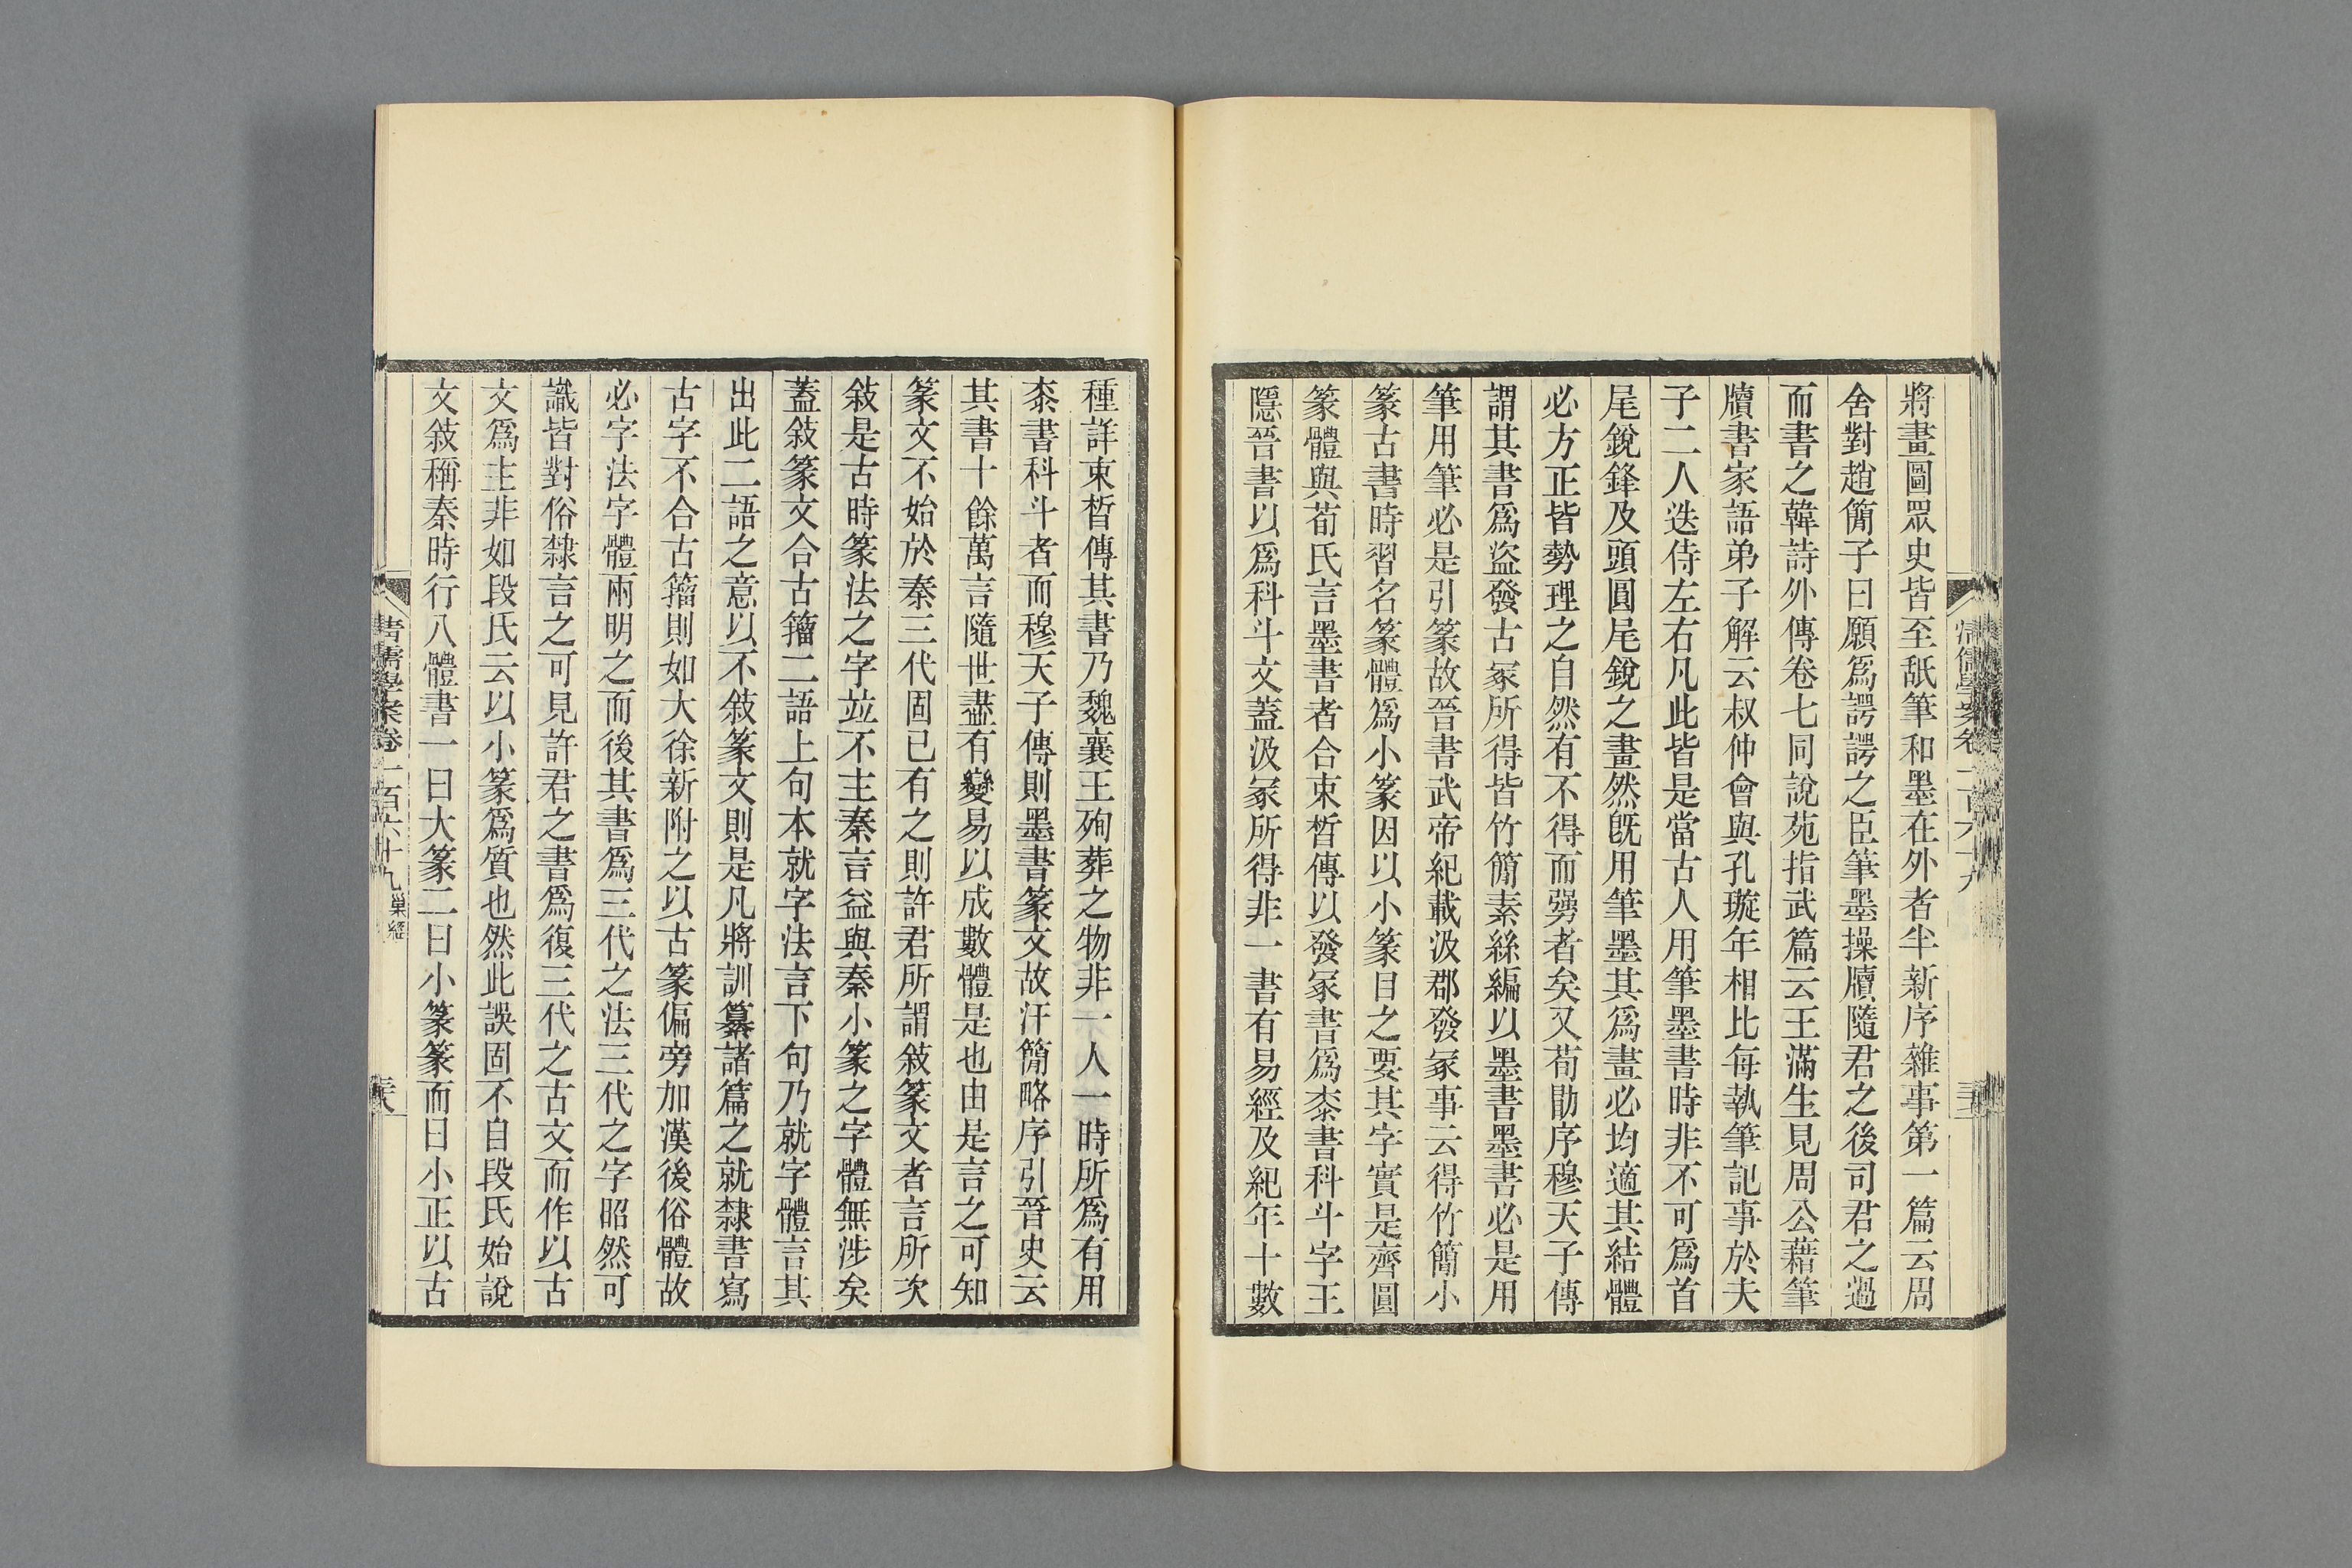 將畫圖眾史皆至舐筆和墨在外者半新序雜事第一篇云周
舍對趙簡子曰願爲諤諤之臣筆墨操牘隨君之後司君之過
而書之韓詩外傳卷七同說苑指武篇云王滿生見周公藉筆
牘書家語弟子解云叔仲會與孔璇年相比每執筆記事於夫
子二人迭侍左右凡此皆是當古人用筆墨書時非不可爲首
尾銳鋒及頭圓尾銳之畫然旣用筆墨其爲畫必均適其結體
必方正皆勢理之自然有不得而彊者矣又荀勖序穆天子傳
謂其書爲盜發古冢所得皆竹簡素絲編以墨書墨書必是用
筆用筆必是引篆故晉書武帝紀載汲郡發冢事云得竹簡小
篆古書時習名篆體爲小篆因以小篆目之要其字實是齊圓
篆體與荀氏言墨書者合束晳傳以發冢書爲桼書科斗字王
隱晉書以爲科斗文蓋汲冢所得非一書有易經及紀年十數
種詳束晳傳其書乃魏襄王殉葬之物非一人一時所爲有用
桼書科斗者而穆天子傳則墨書篆文故汗簡略序引晉史云
其書十餘萬言隨世盡有變易以成數體是也由是言之可知
篆文不始於秦三代固已有之則許君所謂敍篆文者言所次
敍是古時篆法之字竝不主秦言益與秦小篆之字體無涉矣
蓋敍篆文合古籒二語上句本就字法言下句乃就字體言其
出此二語之意以不敍篆文則是凡將訓纂諸篇之就隸書寫
古字不合古籒則如大徐新附之以古篆偏旁加漢後俗體故
必字法字體兩明之而後其書爲三代之法三代之字昭然可
識皆對俗隸言之可見許君之書爲復三代之古文而作以古
文爲主非如段氏云以小篆爲質也然此誤固不自段氏始說
文敍稱秦時行八體書一曰大篆二曰小篆篆而曰小正以古
清儒學案卷一百六十九巢經